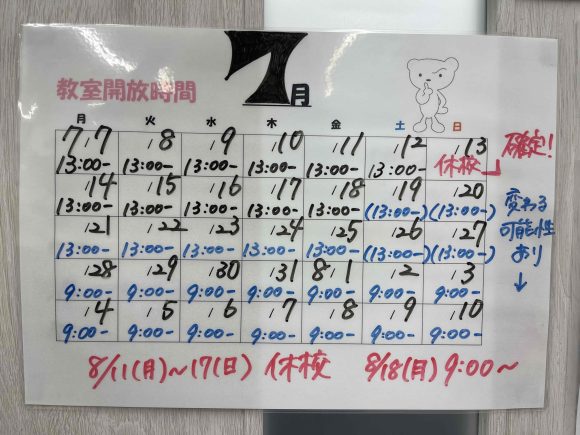 7月
教室開放時間
月 火 水 木 金 土 日
7/7 /8 /9 /10 /11 /12 /13
13:00- 13:00- 13:00- 13:00- 13:00- 13:00- 休校
確定!
/14 /15 /16 /17 /18 /19 /20
13:00- 13:00- 13:00- 13:00- 13:00- (13:00-) (13:00-)
/21 /22 /23 /24 /25 /26 /27
13:00- 13:00- 13:00- 13:00- 13:00- (13:00-) (13:00-)
変わる
可能性
あり
↓
/28 /29 /30 /31 8/1 /2 /3
9:00- 9:00- 9:00- 9:00- 9:00- 9:00- 9:00-
/4 /5 /6 /7 /8 /9 /10
9:00- 9:00- 9:00- 9:00- 9:00- 9:00- 9:00-
8/11(月)~17(日) 休校 8/18(月) 9:00~